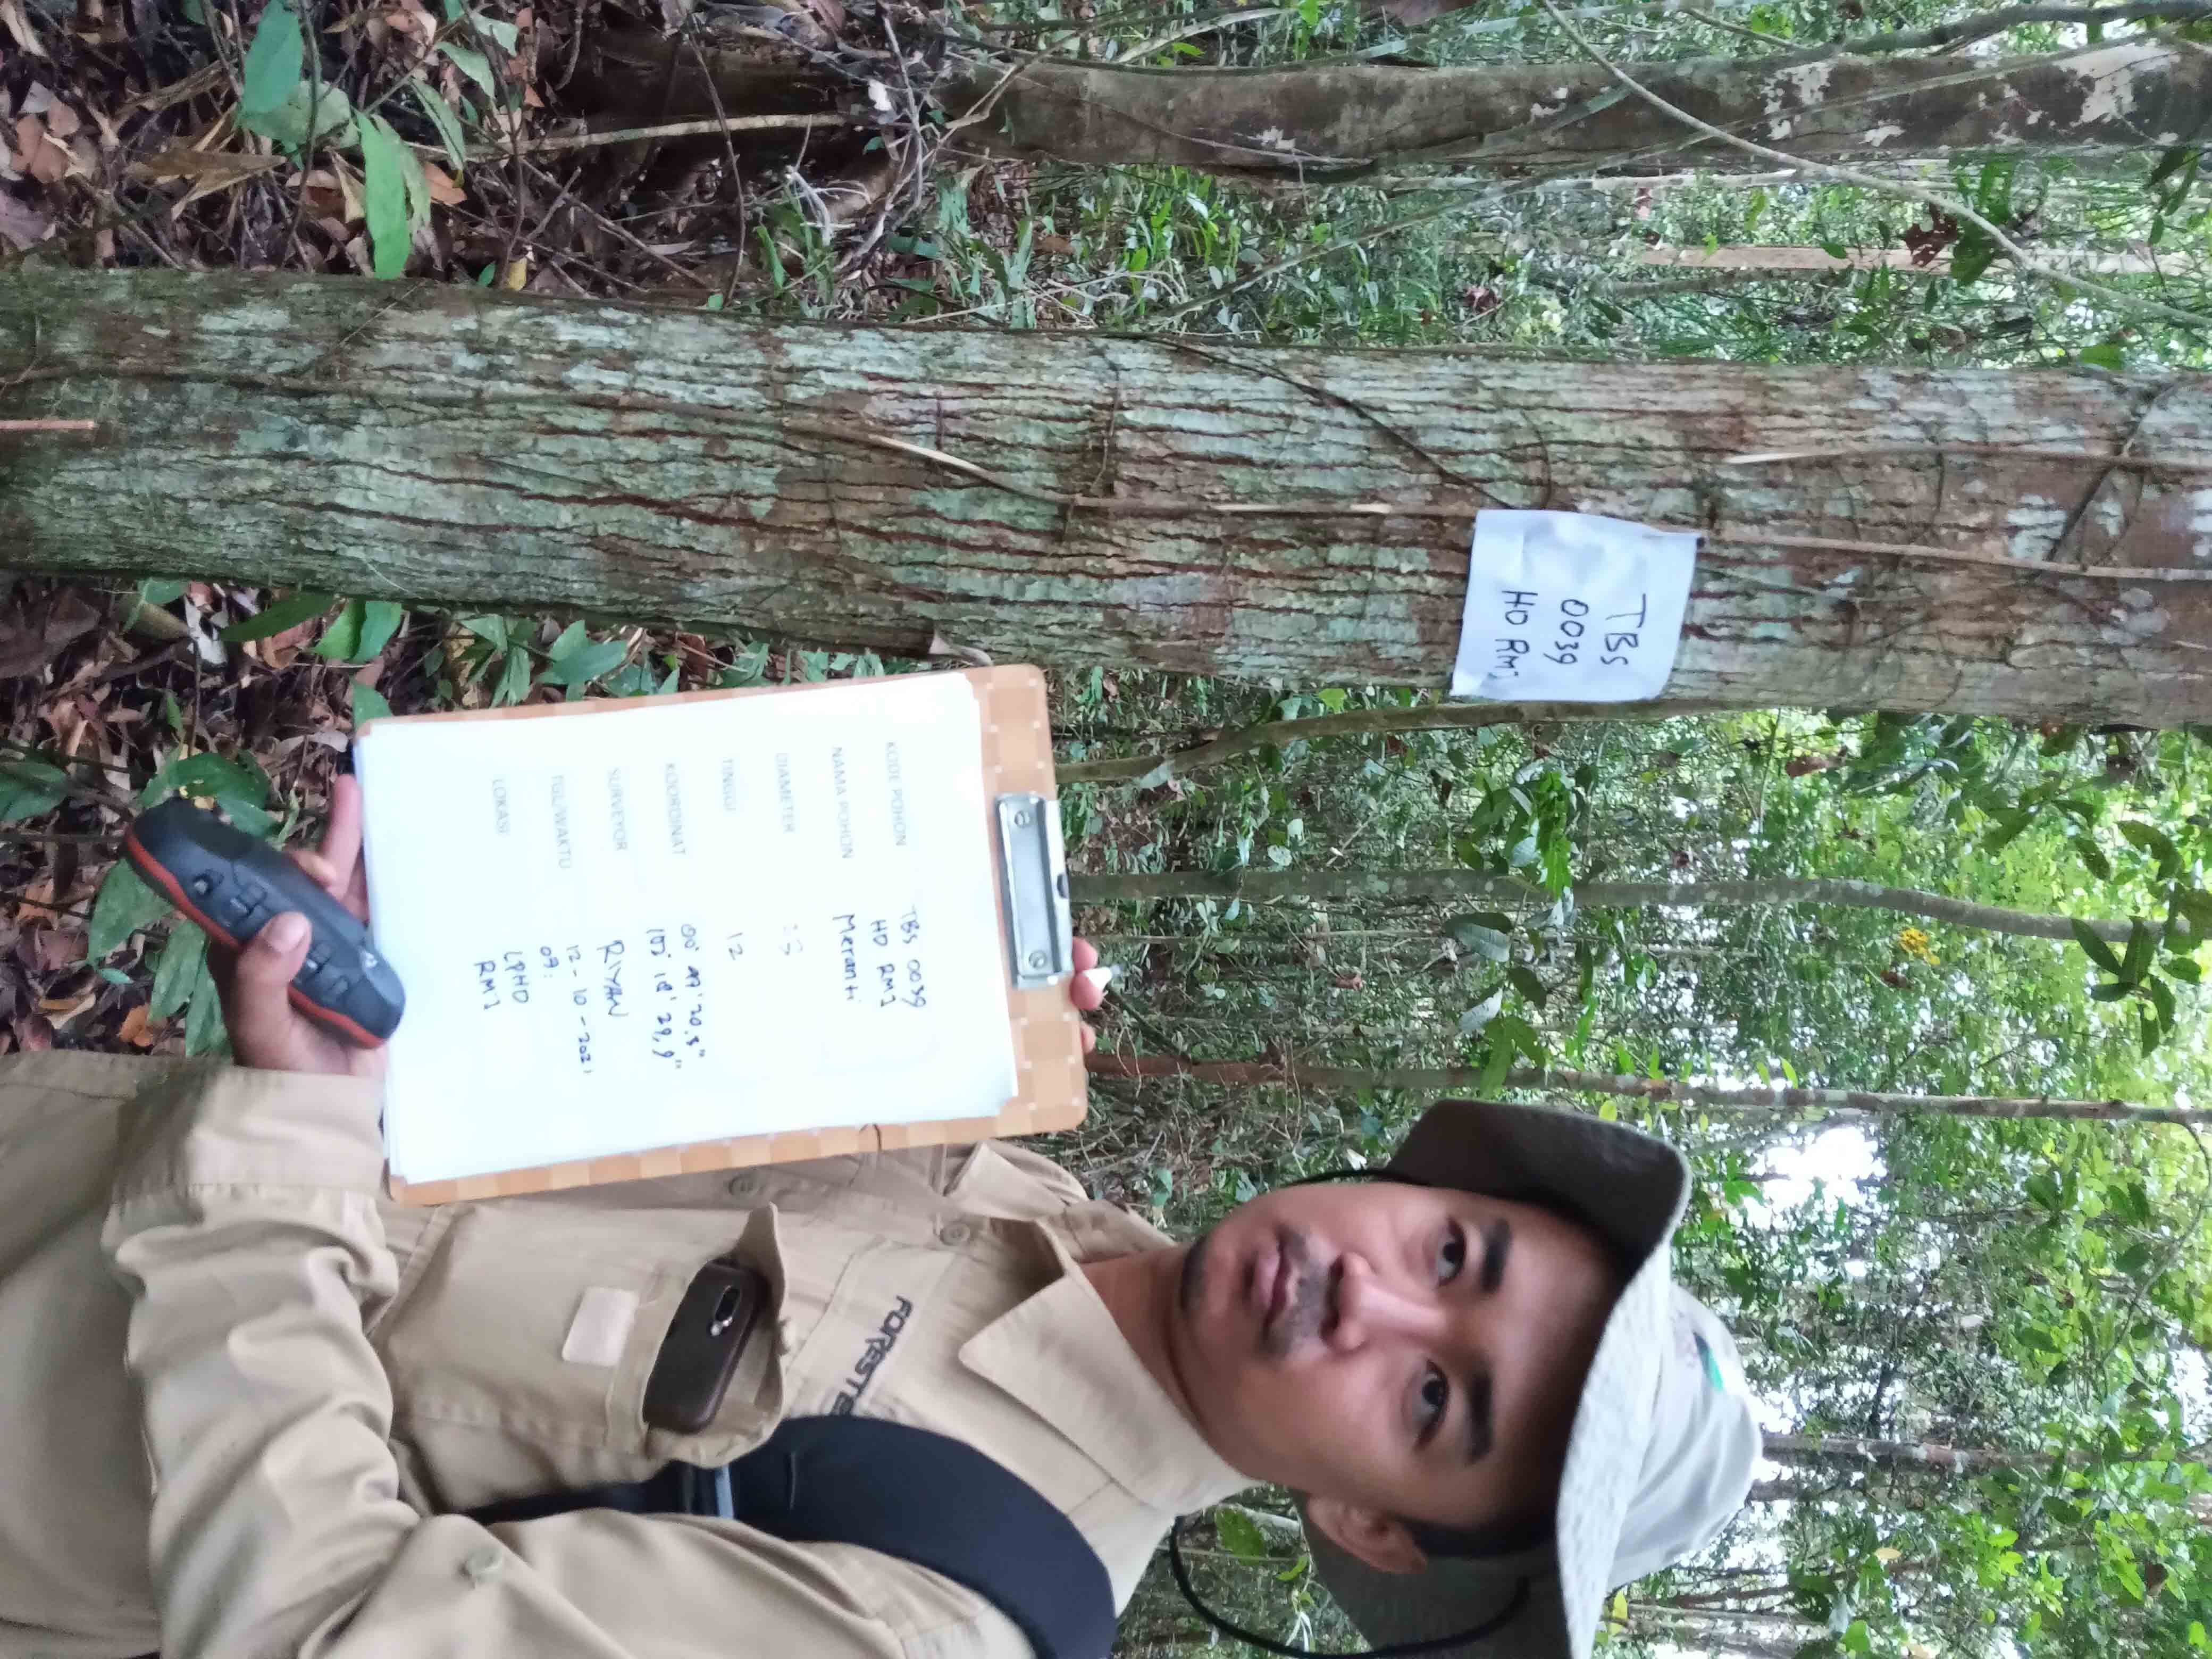 TBS
0039
HD RM1
KODE POHON TBS 0039
HD RM1
NAMA POHON Meranti
DIAMETER
TINGGI 12
KOORDINAT 00° 49' 20,5"
101° 18' 29,9"
SURVEYOR RIYAN
TGL/WAKTU 12-10-2021
09:
LOKASI LPHD
RM1
FORESTE